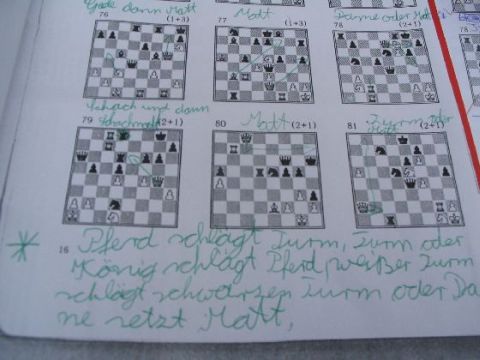 Gade dann Matt
Matt
Dame oder Matt
76 (1+3)
77 (1+3)
78 (2+1)
Schach und dann
Schachmatt
Matt
Turm oder
Matt
79 (2+1)
80 (2+1)
81 (2+1)
16
* Pferd schlägt Turm, Turm oder
König schlägt Pferd, weißer Turm
schlägt schwarzen Turm oder Da
me setzt Matt,